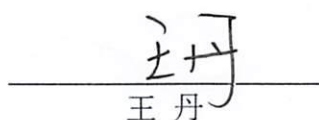 王丹
王 丹